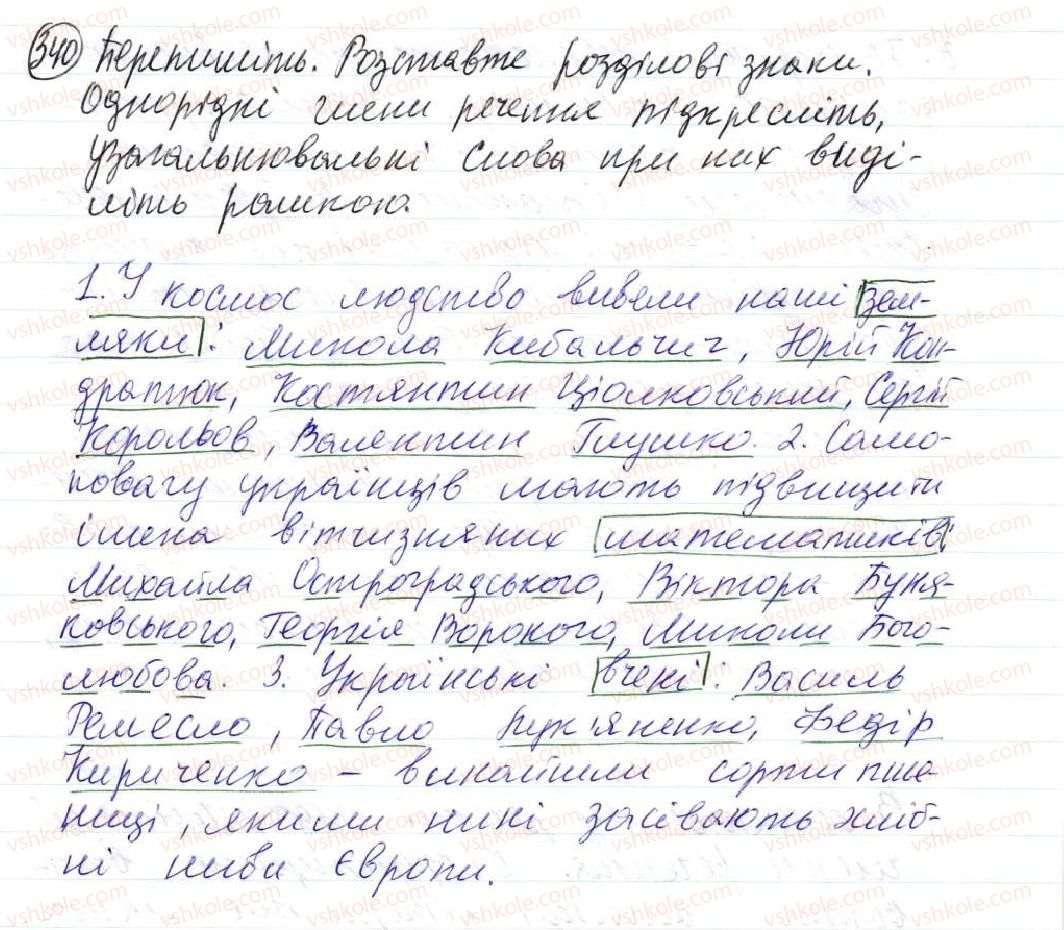 340 Перепишіть. Розставте розділові знаки.
Однорідні члени речення підкресліть,
узагальнювальні слова при них виді-
літь рамкою.
1. У космос людство вивели наші зем-
ляки: Микола Кибальчич, Юрій Кон-
дратюк, Костянтин Ціолковський, Сергій
Корольов, Валентин Глушко. 2. Само-
повагу українців мають підвищити
імена вітчизняних математиків:
Михайла Остроградського, Віктора Буня-
ковського, Георгія Вороного, Миколи Бого-
любова. 3. Українські вчені: Василь
Ремесло, Павло Лук'яненко, Федір
Кириченко – винайшли сорти пше-
ниці, якими нині засівають хліб-
ні ниви Європи.